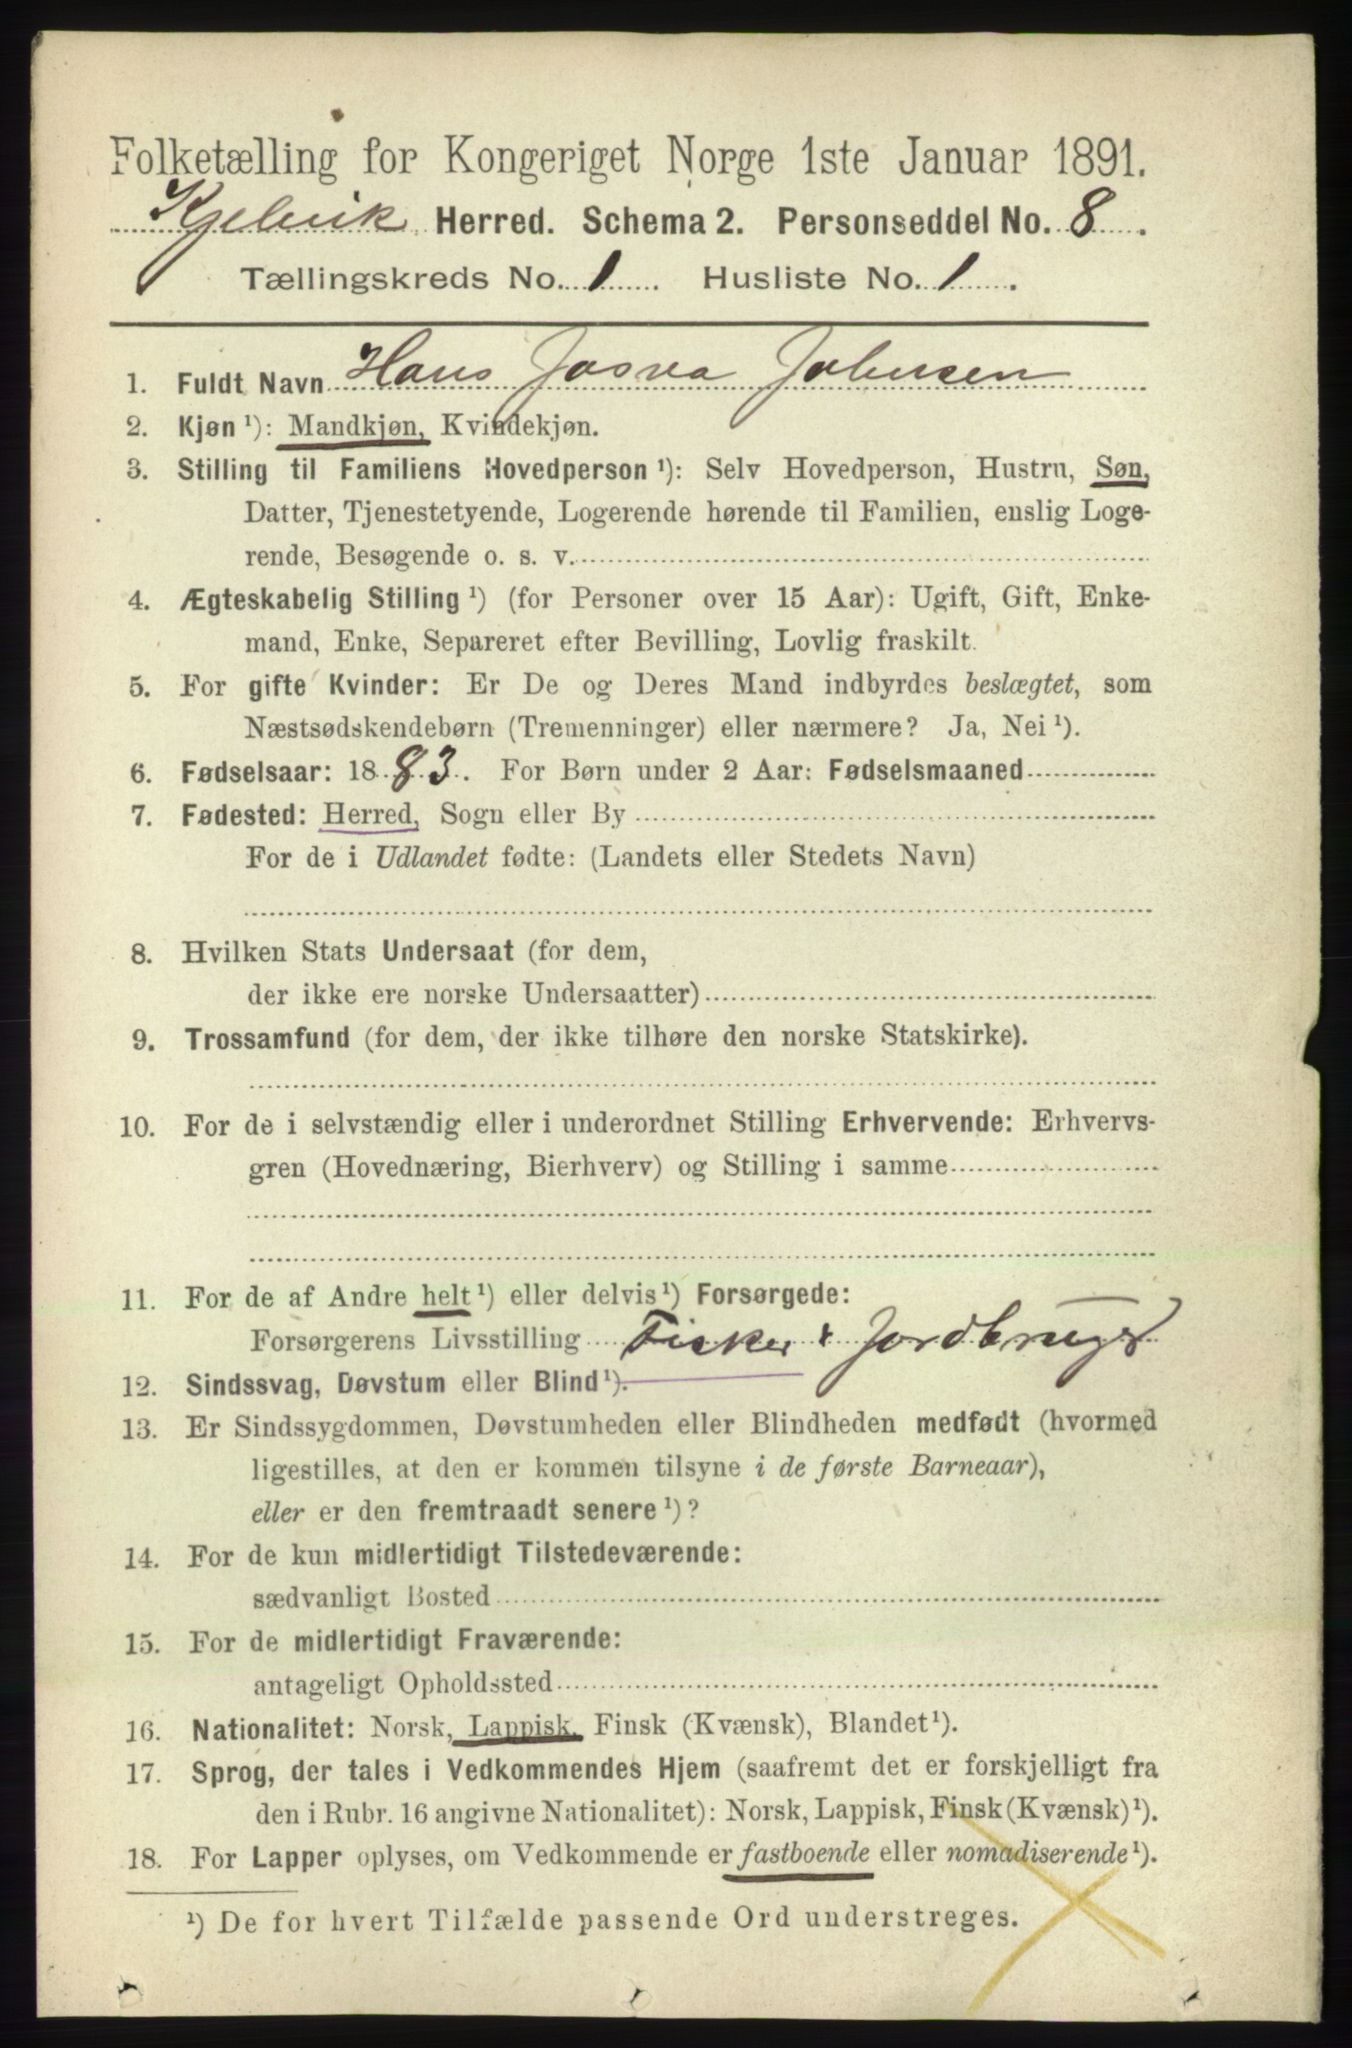 Folketælling for Kongeriget Norge 1ste Januar 1891.
Kjelvik Herred. Schema 2. Personseddel No. 8.
Tællingskreds No. 1. Husliste No. 1.
1. Fuldt Navn Hans Josva Johnsen
2. Kjøn ¹): Mandkjøn, Kvindekjøn.
3. Stilling til Familiens Hovedperson ¹): Selv Hovedperson, Hustru, Søn,
Datter, Tjenestetyende, Logerende hørende til Familien, enslig Loge-
rende, Besøgende o. s. v.
4. Ægteskabelig Stilling ¹) (for Personer over 15 Aar): Ugift, Gift, Enke-
mand, Enke, Separeret efter Bevilling, Lovlig fraskilt.
5. For gifte Kvinder: Er De og Deres Mand indbyrdes beslægtet, som
Næstsødskendebørn (Tremenninger) eller nærmere? Ja, Nei ¹).
6. Fødselsaar: 1883. For Børn under 2 Aar: Fødselsmaaned
7. Fødested: Herred, Sogn eller By
For de i Udlandet fødte: (Landets eller Stedets Navn)
8. Hvilken Stats Undersaat (for dem,
der ikke ere norske Undersaatter)
9. Trossamfund (for dem, der ikke tilhøre den norske Statskirke).
10. For de i selvstændig eller i underordnet Stilling Erhvervende: Erhvervs-
gren (Hovednæring, Bierhverv) og Stilling i samme
11. For de af Andre helt ¹) eller delvis ¹) Forsørgede:
Forsørgerens Livsstilling Fisker + Jordbruger
12. Sindssvag, Døvstum eller Blind ¹).
13. Er Sindssygdommen, Døvstumheden eller Blindheden medfødt (hvormed
ligestilles, at den er kommen tilsyne i de første Barneaar),
eller er den fremtraadt senere ¹)?
14. For de kun midlertidigt Tilstedeværende:
sædvanligt Bosted
15. For de midlertidigt Fraværende:
antageligt Opholdssted
16. Nationalitet: Norsk, Lappisk, Finsk (Kvænsk), Blandet ¹).
17. Sprog, der tales i Vedkommendes Hjem (saafremt det er forskjelligt fra
den i Rubr. 16 angivne Nationalitet): Norsk, Lappisk, Finsk (Kvænsk) ¹).
18. For Lapper oplyses, om Vedkommende er fastboende eller nomadiserende ¹).
¹) De for hvert Tilfælde passende Ord understreges.